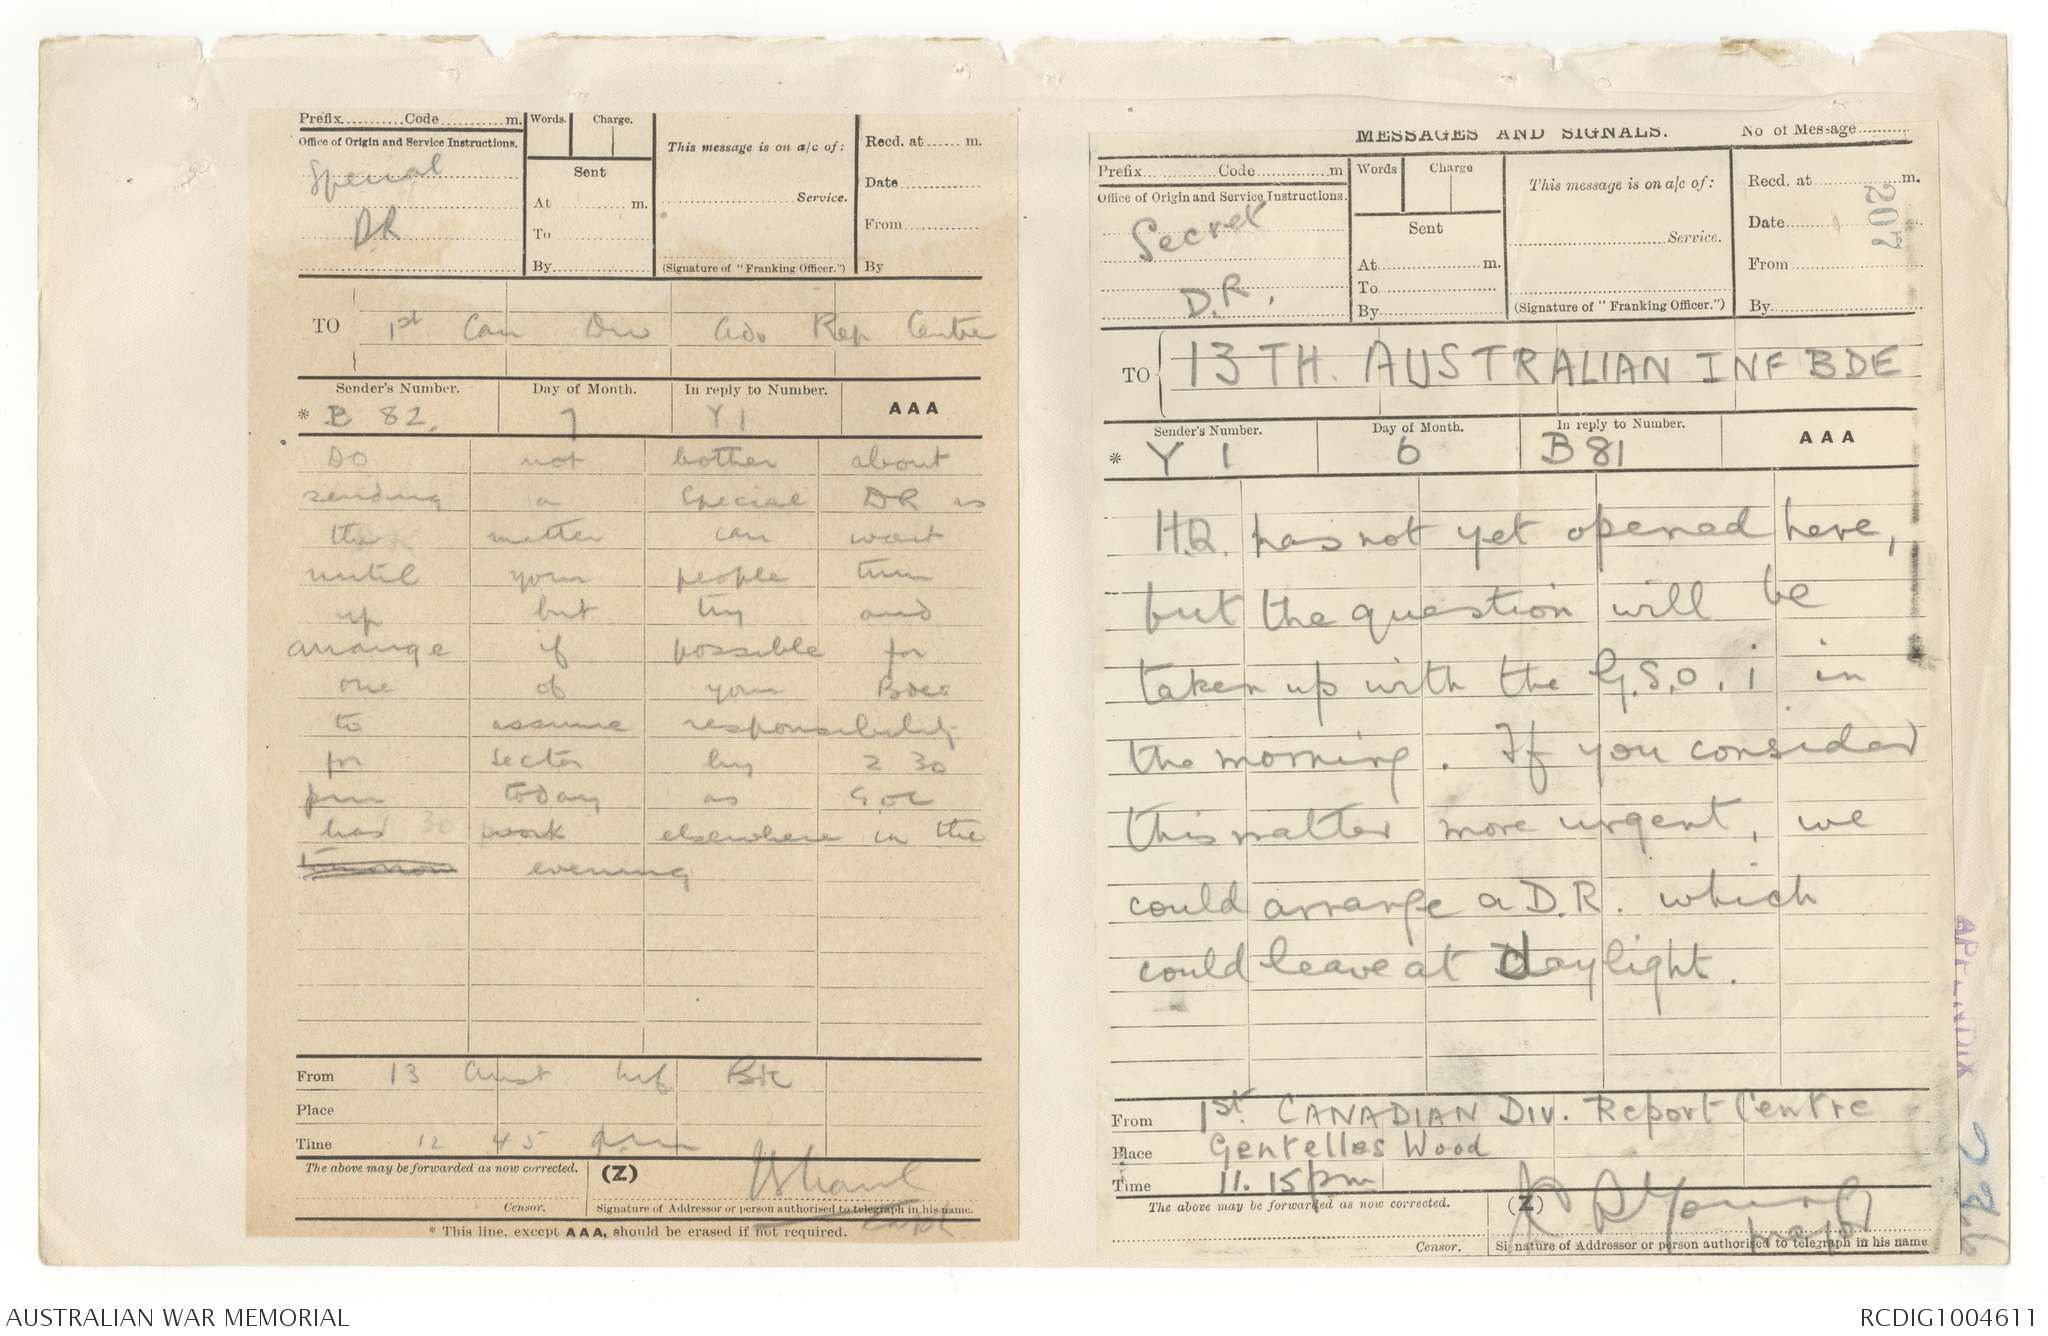 Prefix.......... Code............m.
Words.
Charge.
Office of Origin and Service Instructions.
Special
DR
Sent
At ........... m.
To
By
This message is on a/c of:
Service.
(Signature of "Franking Officer.")
Recd. at ...... m.
Date
From
By
TO
1st Can Div Adv Rep Centre
Sender's Number.
Day of Month.
In reply to Number.
AAA
* B 82.
7
Y 1
Do not bother about
sending a special DR as
the matter can wait
until your people turn
up but try and
arrange if possible for
one of your Bdes
to assume responsibility
for sector by 2 30
pm today as GOC
has work elsewhere in the
evening
From 13 Aust Inf Bde
Place
Time 12 45
The above may be forwarded as now corrected.
(Z)
Censor.
Signature of Addressor or person authorised to telegraph in his name.
Capt
* This line, except AAA, should be erased if not required.
MESSAGES AND SIGNALS.
No of Message
Prefix... Code...............m
Words
Charge
Office of Origin and Service Instructions.
Secret
D.R.
Sent
At............m.
To
By
This message is on a/c of:
Service.
(Signature of "Franking Officer.")
Recd. at.............m.
Date
From
By
207
TO
13TH. AUSTRALIAN INF BDE
Sender's Number.
Day of Month.
In reply to Number.
AAA
* Y 1
6
B 81
H.Q. has not yet opened here,
but the question will be
taken up with the G.S.O. i in
the morning. If you consider
this matter more urgent, we
could arrange a D.R. which
could leave at daylight.
From 1st CANADIAN DIV. Report Centre
Place Gentelles Wood
Time 11.15pm
The above may be forwarded as now corrected.
(Z)
Young
Censor.
Signature of Addressor or person authorised to telegraph in his name
APPENDIX
AUSTRALIAN WAR MEMORIAL
RCDIG1004611